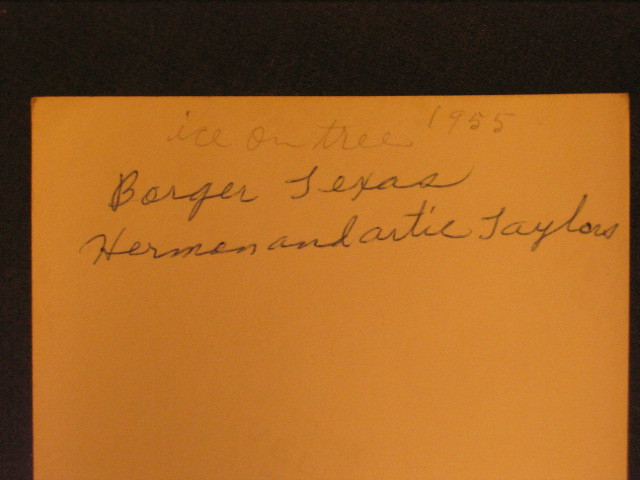 ice on tree 1955
Borger Texas
Hermon and artie Taylors